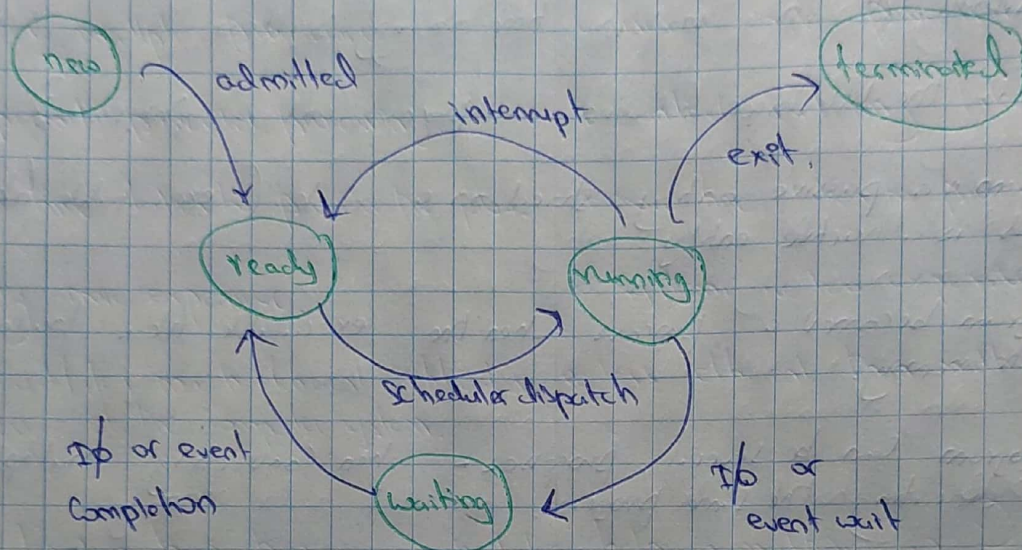 new
terminated
admitted
interrupt
exit.
ready
running
scheduler dispatch
I/O or event
Completion
waiting
I/O or
event wait